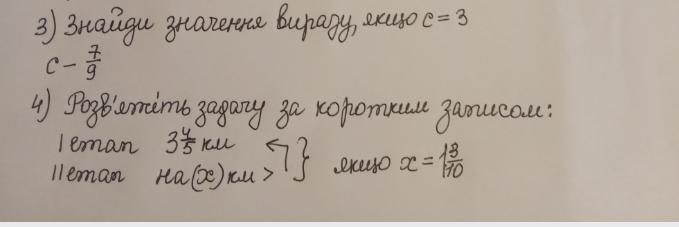 3) Знайди значення виразу, якщо c = 3
c - 7/9
4) Розв'яжіть задачу за коротким записом:
I етап 3 4/5 км
II етап на (x) км > } якщо x = 1 3/10